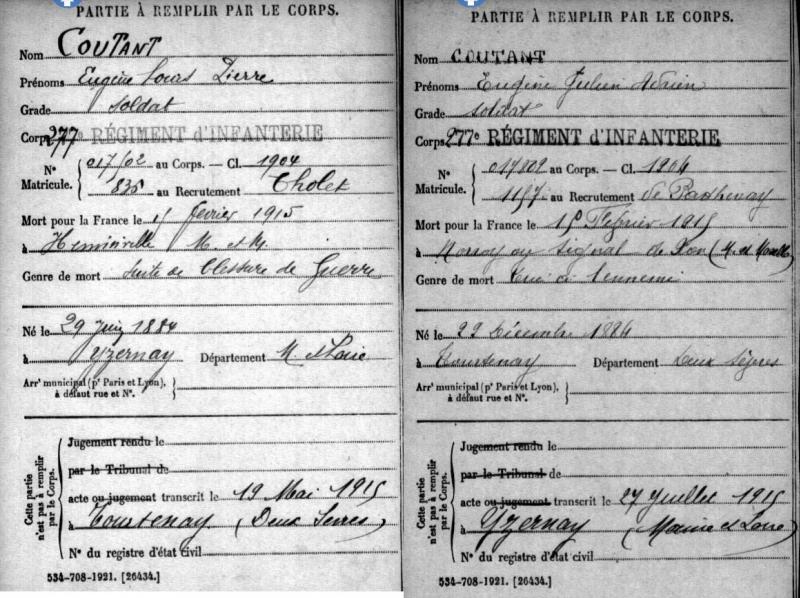 PARTIE À REMPLIR PAR LE CORPS.
Nom COUTANT
Prénoms Eugène Louis Pierre
Grade Soldat
Corps 277e RÉGIMENT d'INFANTERIE
N° Matricule. 017/02 au Corps. — Cl. 1904
835 au Recrutement Cholet
Mort pour la France le 15 février 1915
à M. et M.
Genre de mort Suite de blessure de Guerre
Né le 29 Juin 1884
à Yzernay Département M. et Loire
Arrt municipal (pr Paris et Lyon), à défaut rue et N°.
Cette partie n'est pas à remplir par le Corps.
Jugement rendu le
par le Tribunal de
acte ou jugement transcrit le 19 Mai 1915
à Tourtenay (Deux Sevres)
N° du registre d'état civil
534-708-1921. [26434.]
PARTIE À REMPLIR PAR LE CORPS.
Nom COUTANT
Prénoms Eugène Julien Adrien
Grade soldat
Corps 277e RÉGIMENT d'INFANTERIE
N° Matricule. 017002 au Corps. — Cl. 1904
1157 au Recrutement de Parthenay
Mort pour la France le 15 Février 1915
à Norroy au Signal de Xon (M. et Moselle)
Genre de mort Tué à l'ennemi
Né le 22 Décembre 1884
à Tourtenay Département Deux Sèvres
Arrt municipal (pr Paris et Lyon), à défaut rue et N°.
Cette partie n'est pas à remplir par le Corps.
Jugement rendu le
par le Tribunal de
acte ou jugement transcrit le 27 Juillet 1915
à Yzernay (Maine et Loire)
N° du registre d'état civil
534-708-1921. [26434.]